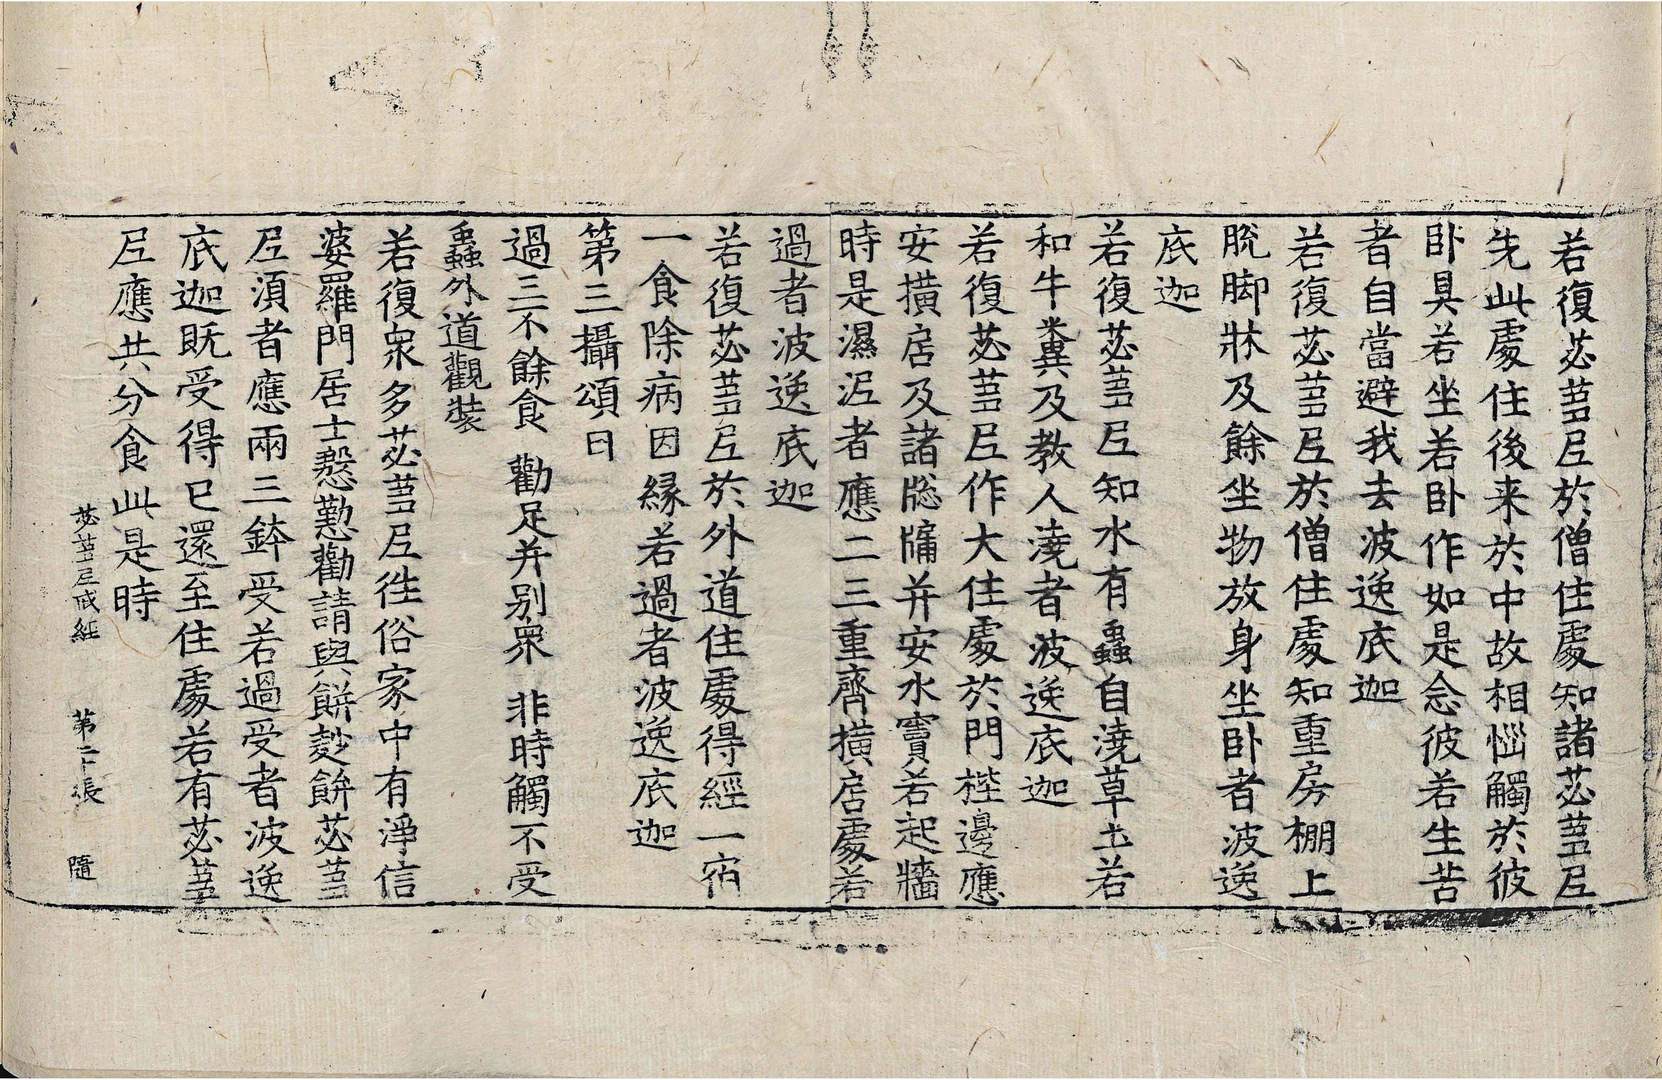 若復苾蒭尼於僧住處知諸苾蒭尼
先此處住後来於中故相惱觸於彼
卧具若坐若卧作如是念彼若生苦
者自當避我去波逸底迦
若復苾蒭尼於僧住處知重房棚上
脫脚牀及餘坐物放身坐卧者波逸
底迦
若復苾蒭尼知水有蟲自澆草土若
和牛糞及教人澆者波逸底迦
若復苾蒭尼作大住處於門桯邊應
安撗扂及諸牎牖并安水竇若起牆
時是濕泥者應二三重齊撗扂處若
過者波逸底迦
若復苾蒭尼於外道住處得經一宿
一食除病因緣若過者波逸底迦
第三攝頌曰
過三不餘食 勸足并别衆 非時觸不受
蟲外道觀裝
若復衆多苾蒭尼徃俗家中有淨信
婆羅門居士慇懃勸請與餅麨餅苾蒭
尼湏者應兩三鉢受若過受者波逸
底迦既受得已還至住處若有苾蒭
尼應共分食此是時
苾蒭尼戒經 第二十張 隨